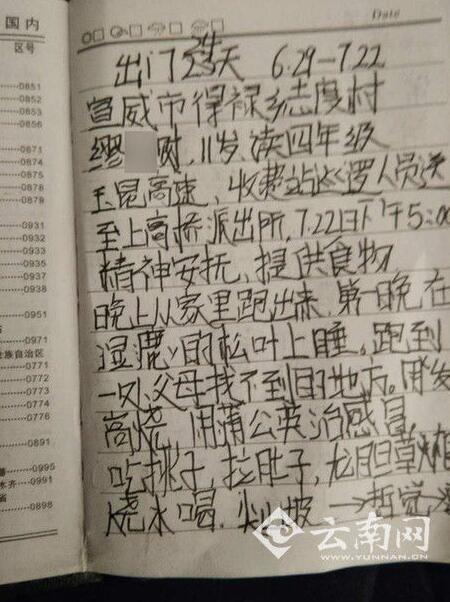 国内
区号
0851
0852
0853
0856
0871
0874
0878
0879
0931
0932
0933
0935
0937
0938
0951
0971
族自治区
0771
0772
0773
0774
0776
0891
0995
水齐 0991
省
0898
Date
出门24天 6.29—7.22
宣威市得禄乡志度村
缪 财,11岁,读四年级
玉昆高速,收费站巡逻人员送
至上高桥派出所,7.22日下午5:00
精神安抚,提供食物
晚上从家里跑出来,第一晚在
湿漉漉的松叶上睡,跑到
一处父母找不到的地方。
高烧,用蒲公英治感冒,
吃挑子,拉肚子,龙胆草
烧水喝,
云南网
WWW.YUNNAN.CN